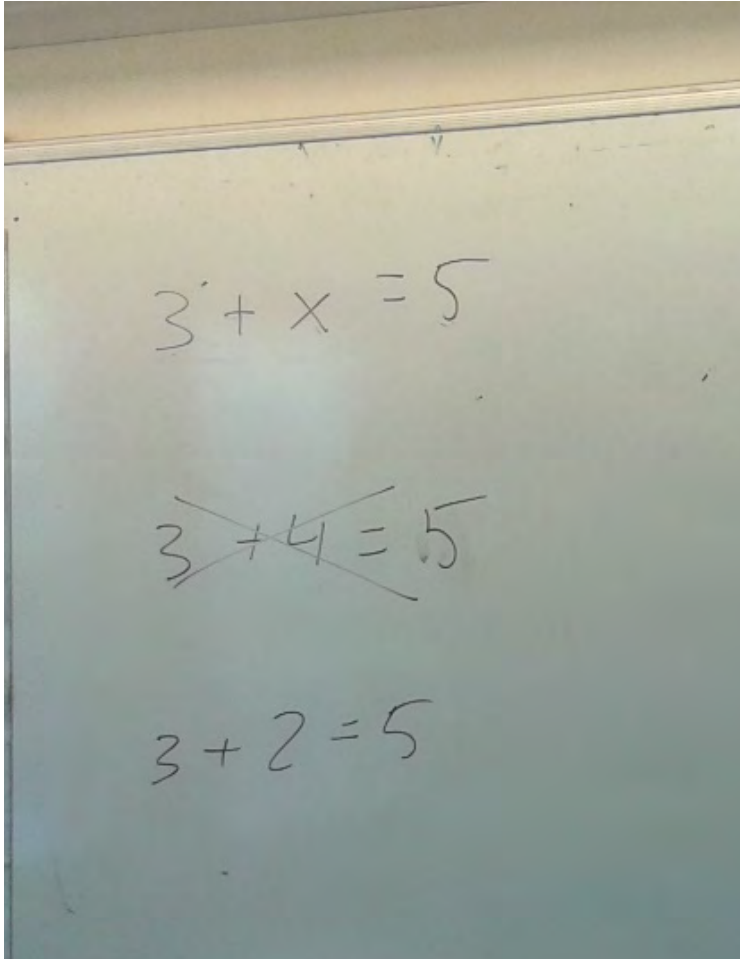 3 + x = 5
3 + 4 = 5
3 + 2 = 5